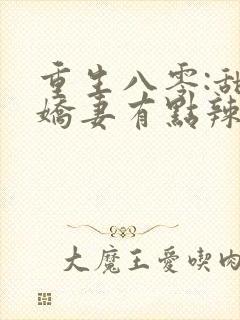 重生八零:甜
嬌妻有點辣
大魔王愛喫肉